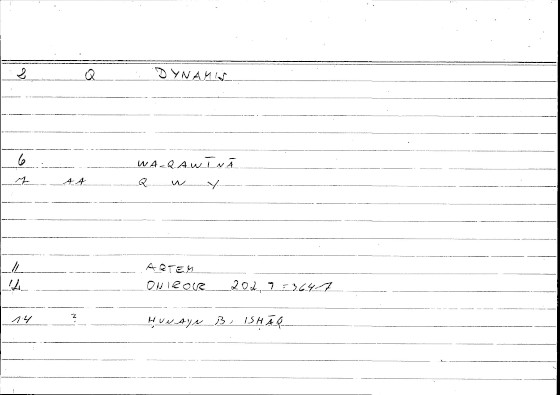 2 Q DYNAMIS
6 WA-QAWĪNĀ
7 AA Q W Y
11 ARTEM
12 ONIROCR 202,7 = 364
14 ? ḤUNAYN B. ISḤĀQ